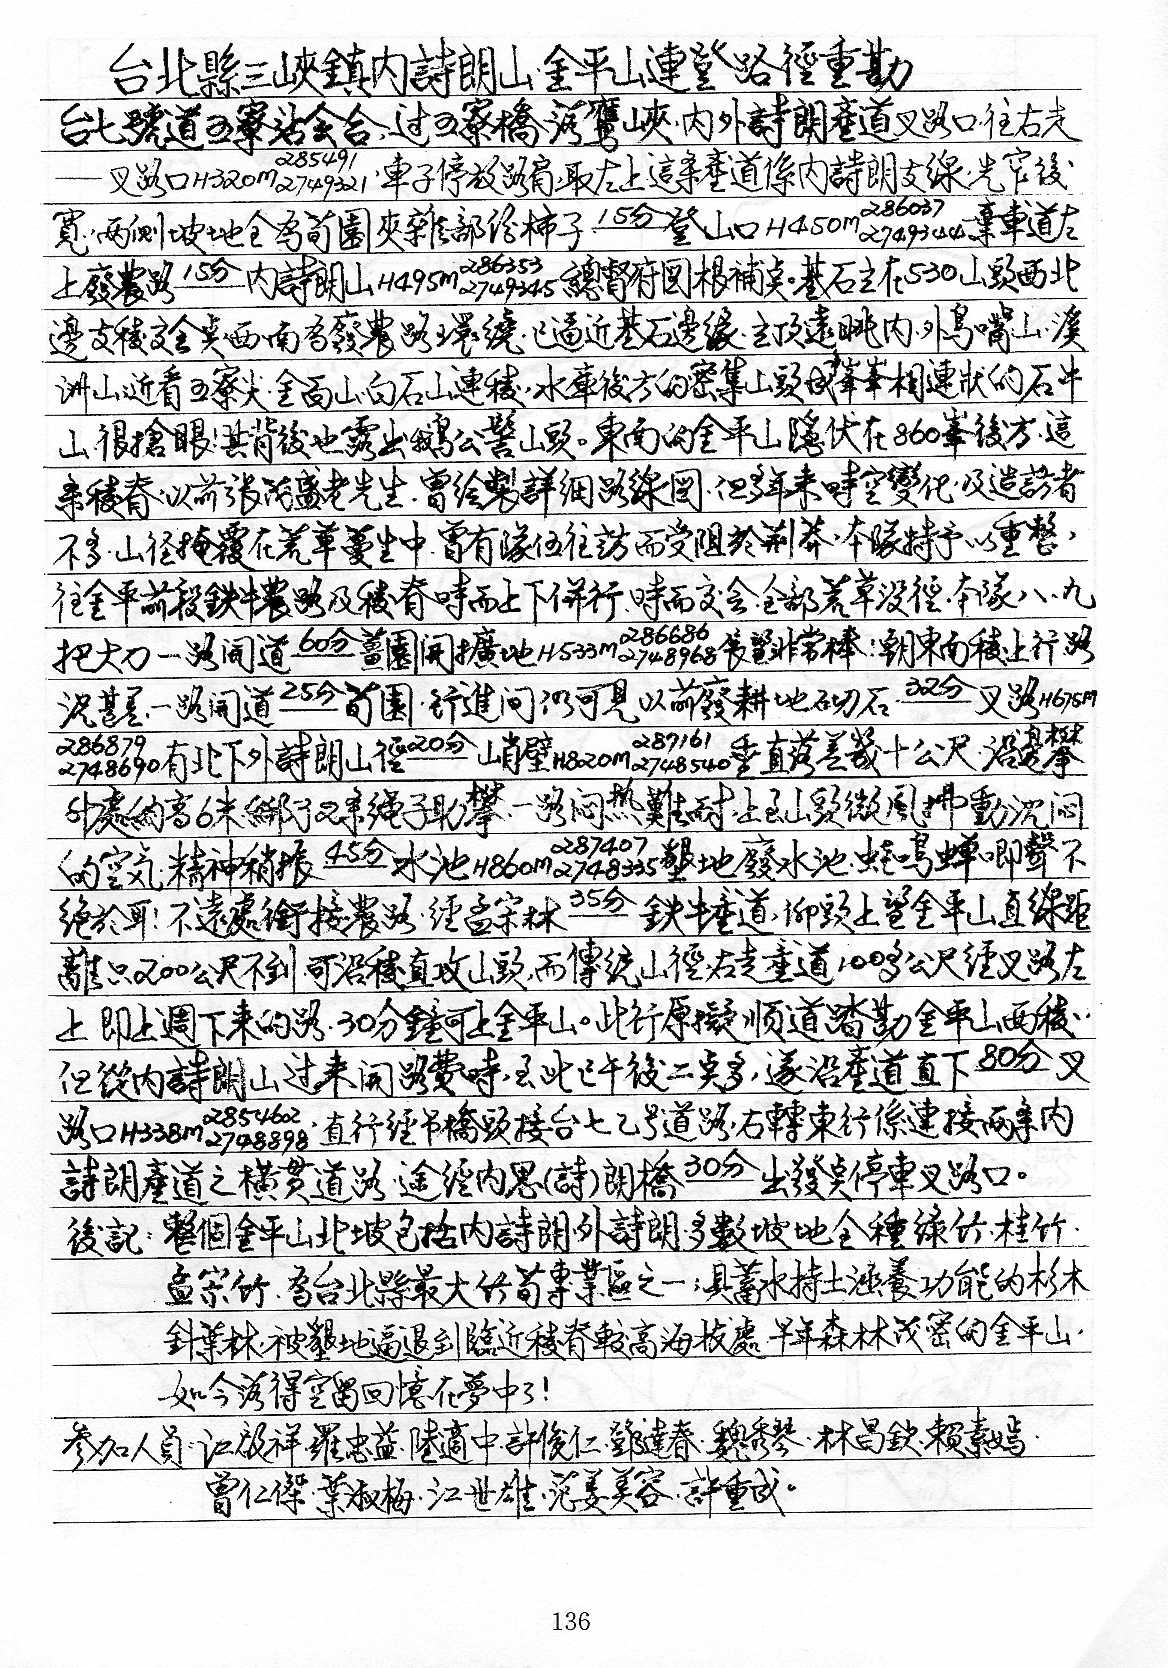 台北縣三峽鎮內詩朗山·金平山連登路徑重勘
台七號道五寮站会合,过五寮橋·落鷹峽·內外詩朗產道叉路口·往右走
——叉路口H320m 285491 2749321·車子停放路肩·取左上這条產道係內詩朗支線·先窄後
寬·兩側坡地全為荀園夾雜部份柿子 15分 登山口H450m 286037 2749344 棄車道左
上廢農路 15分 內詩朗山H495m 286353 2749345 總督府図根補点。基石立在530山頭西北
邊支稜交会点·西·南為廢農路環繞·已逼近基石邊緣·立頂遠眺內·外鳥嘴山·溪
洲山·近看五寮尖·金面山·白石山連稜·水庫後方的密集山頭成峯峯相連狀的石牛
山·很搶眼!其背後也露出鵝公髻山頭。東南的金平山隱伏在860峯後方·這
条稜脊·以前張茂盛老先生·曾绘製詳細路線図·但多年來時空變化·及造訪者
不多·山徑掩覆在荒草蔓生中·曾有隊伍往訪而受阻於荆莽·本隊特予以重整,
往金平前段鉄牛農路及稜脊時而上下併行、時而交会·全部荒草没徑·本隊八、九
把大刀一路開道 60分 薑園開擴地H533m 286686 2748968 展望非常棒!朝東南稜上行路
況甚差·一路開道 25分 荀園·行進间仍可見以前廢耕地砌石 32分 叉路H675m
286879 2748690 有北下外詩朗山徑 20分 山肖壁H820m 287161 2748540 垂直落差幾十公尺·沿邊攀
升處約高6米·綁了2条繩子助攀·一路闷热難耐·上至山頭微風拂動沈闷
的空氣·精神稍振 45分 水池H860m 287407 2748335 墾地廢水池·蛙鳴蟬唧聲不
绝於耳!不遠處銜接農路·經孟宗林 35分 鉄牛產道·仰頭上望金平山直線距
離只200公尺不到·可沿稜直攻山頭·而傳统山徑右走產道100多公尺經叉路左
上即上週下来的路·30分鐘可上金平山。此行原擬順道踏勘金平山西稜‥
但從內詩朗山过来開路費時,至此已午後二点多,遂沿產道直下 80分 叉
路口H338m 2854602 2748898·直行經吊橋頭接台七乙号道路·右轉東行係連接兩条內
詩朗產道之橫貫道路·途經內思(詩)朗橋 30分 出發点停車叉路口。
後記:整個金平山北坡包括內詩朗外詩朗·多數坡地全種綠竹·桂竹·
孟宗竹·為台北縣最大竹荀專業區之一;具蓄水持土涵養功能的杉木
針葉林·被墾地逼退到臨近稜脊較高海拔處·早年森林茂密的金平山·
如今落得空留回憶在夢中了!
參加人員:江啟祥·羅忠益·陸適中·許俊仁·鄧達春·魏秀琴·林昌欽·賴素嫣·
曾仁傑·葉淑梅·江世雄·范姜美容·許重成。
136